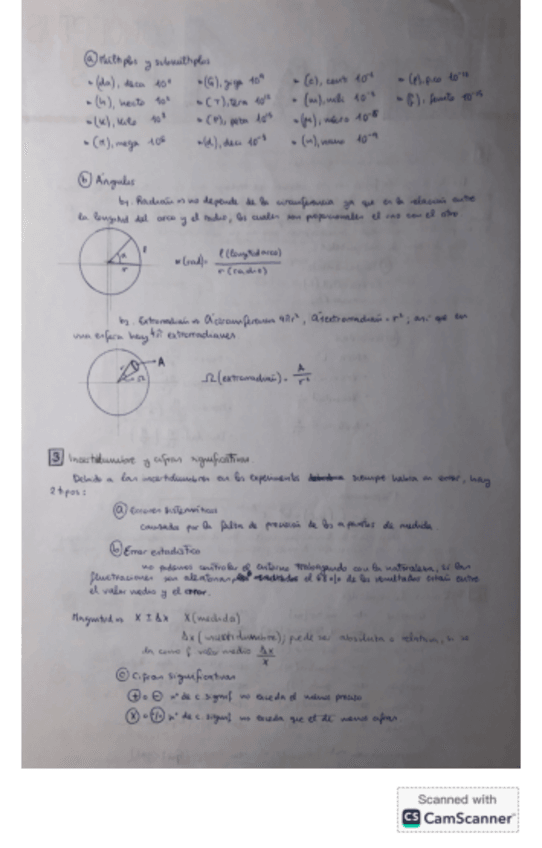 ⓐ Múltiplos y submúltiplos
• (da), deca 10¹ • (G), giga 10⁹ • (c), centi 10⁻² • (p), pico 10⁻¹²
• (h), hecto 10² • (T), tera 10¹² • (m), mili 10⁻³ • (f), femto 10⁻¹⁵
• (K), kilo 10³ • (P), peta 10¹⁵ • (μ), micro 10⁻⁶
• (M), mega 10⁶ • (d), deci 10⁻¹ • (n), nano 10⁻⁹
ⓑ Ángulos
b₁. Radián no depende de la circunferencia ya que es la relación entre
la longitud del arco y el radio, los cuales son proporcionales el uno con el otro
α l
r
α (rad) = l (longitud arco) / r (radio)
b₂. Estereorradián A circunferencia 4πr², A estereorradián = r²; así que en
una esfera hay 4π estereorradianes
A
r Ω
Ω (estereorradián) = A / r²
3 Incertidumbre y cifras significativas
Debido a las incertidumbres en los experimentos siempre habrá un error, hay
2 tipos:
ⓐ Errores sistemáticos
causados por la falta de precisión de los aparatos de medida.
ⓑ Error estadístico
no podemos controlar el entorno trabajando con la naturaleza, si las
fluctuaciones son aleatorias, el 68% de los resultados están entre
el valor medio y el error.
Magnitud X ± Δx X (medida)
Δx (incertidumbre); puede ser absoluta o relativa, si se
da como valor medio Δx / x
ⓒ Cifras significativas
⊕ o ⊖ nº de c. signif. no exceda el menos preciso
ⓧ o ÷ nº de c. signif. no exceda que el de menos cifras
Scanned with
CS CamScanner